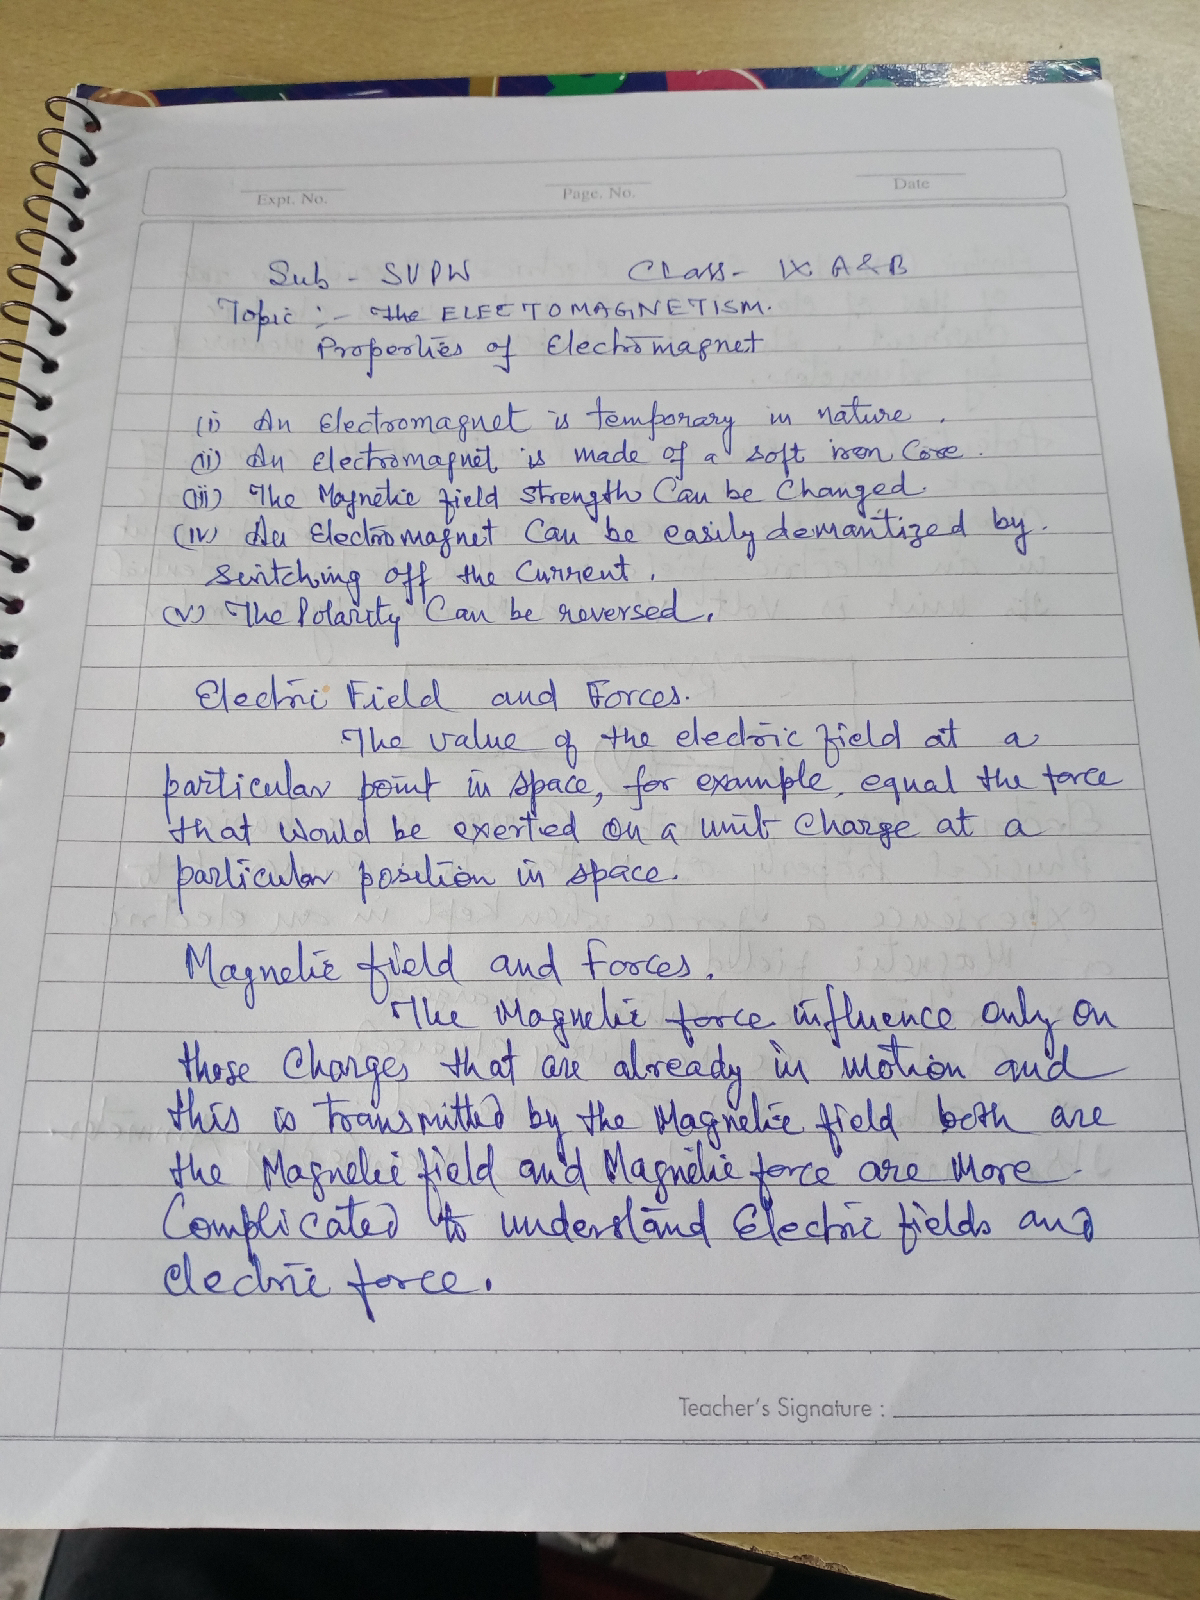 Expt. No. Page. No. Date
Sub - SUPW Class - IX A&B
Topic :- The ELECTOMAGNETISM.
Properties of Electromagnet
(i) An Electromagnet is temporary in nature.
(ii) An Electromagnet is made of a soft iron Core.
(iii) The Magnetic field strength Can be Changed.
(iv) An Electromagnet Can be easily demantized by.
switching off the Current.
(v) The Polarity Can be reversed.
Electric Field and Forces.
The value of the electric field at a
particular point in space, for example, equal the force
that would be exerted on a unit Charge at a
particular position in space.
Magnetic field and Forces.
The Magnetic force influence only on
those Charges that are already in motion and
this is transmitted by the Magnetic field both are
the Magnetic field and Magnetic force are More
Complicated to understand Electric fields and
electric force.
Teacher's Signature :